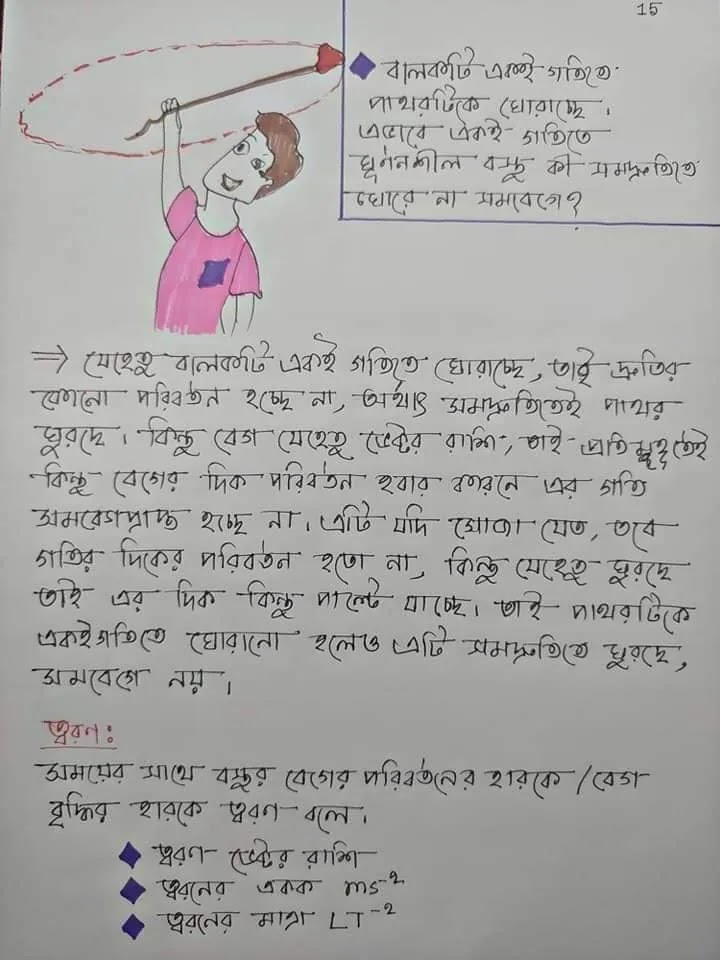 15
বালকটি একই গতিতে
পাথরটিকে ঘোরাচ্ছে।
এভাবে একই গতিতে
ঘূর্ণনশীল বস্তু কী সমদ্রুতিতে
ঘোরে না সমবেগে?
⇒ যেহেতু বালকটি একই গতিতে ঘোরাচ্ছে, তাই দ্রুতির
কোনো পরিবর্তন হচ্ছে না, অর্থাৎ সমদ্রুতিতেই পাথর
ঘুরছে। কিন্তু বেগ যেহেতু ভেক্টর রাশি, তাই প্রতি মুহূর্তেই
কিন্তু বেগের দিক পরিবর্তন হবার কারনে এর গতি
সমবেগপ্রাপ্ত হচ্ছে না। এটি যদি সোজা যেত, তবে
গতির দিকের পরিবর্তন হতো না, কিন্তু যেহেতু ঘুরছে
তাই এর দিক কিন্তু পাল্টে যাচ্ছে। তাই পাথরটিকে
একইগতিতে ঘোরানো হলেও এটি সমদ্রুতিতে ঘুরছে,
সমবেগে নয়।
ত্বরণ:
সময়ের সাথে বস্তুর বেগের পরিবর্তনের হারকে/বেগ
বৃদ্ধির হারকে ত্বরণ বলে।
ত্বরণ ভেক্টর রাশি
ত্বরনের একক ms⁻²
ত্বরনের মাত্রা LT⁻²